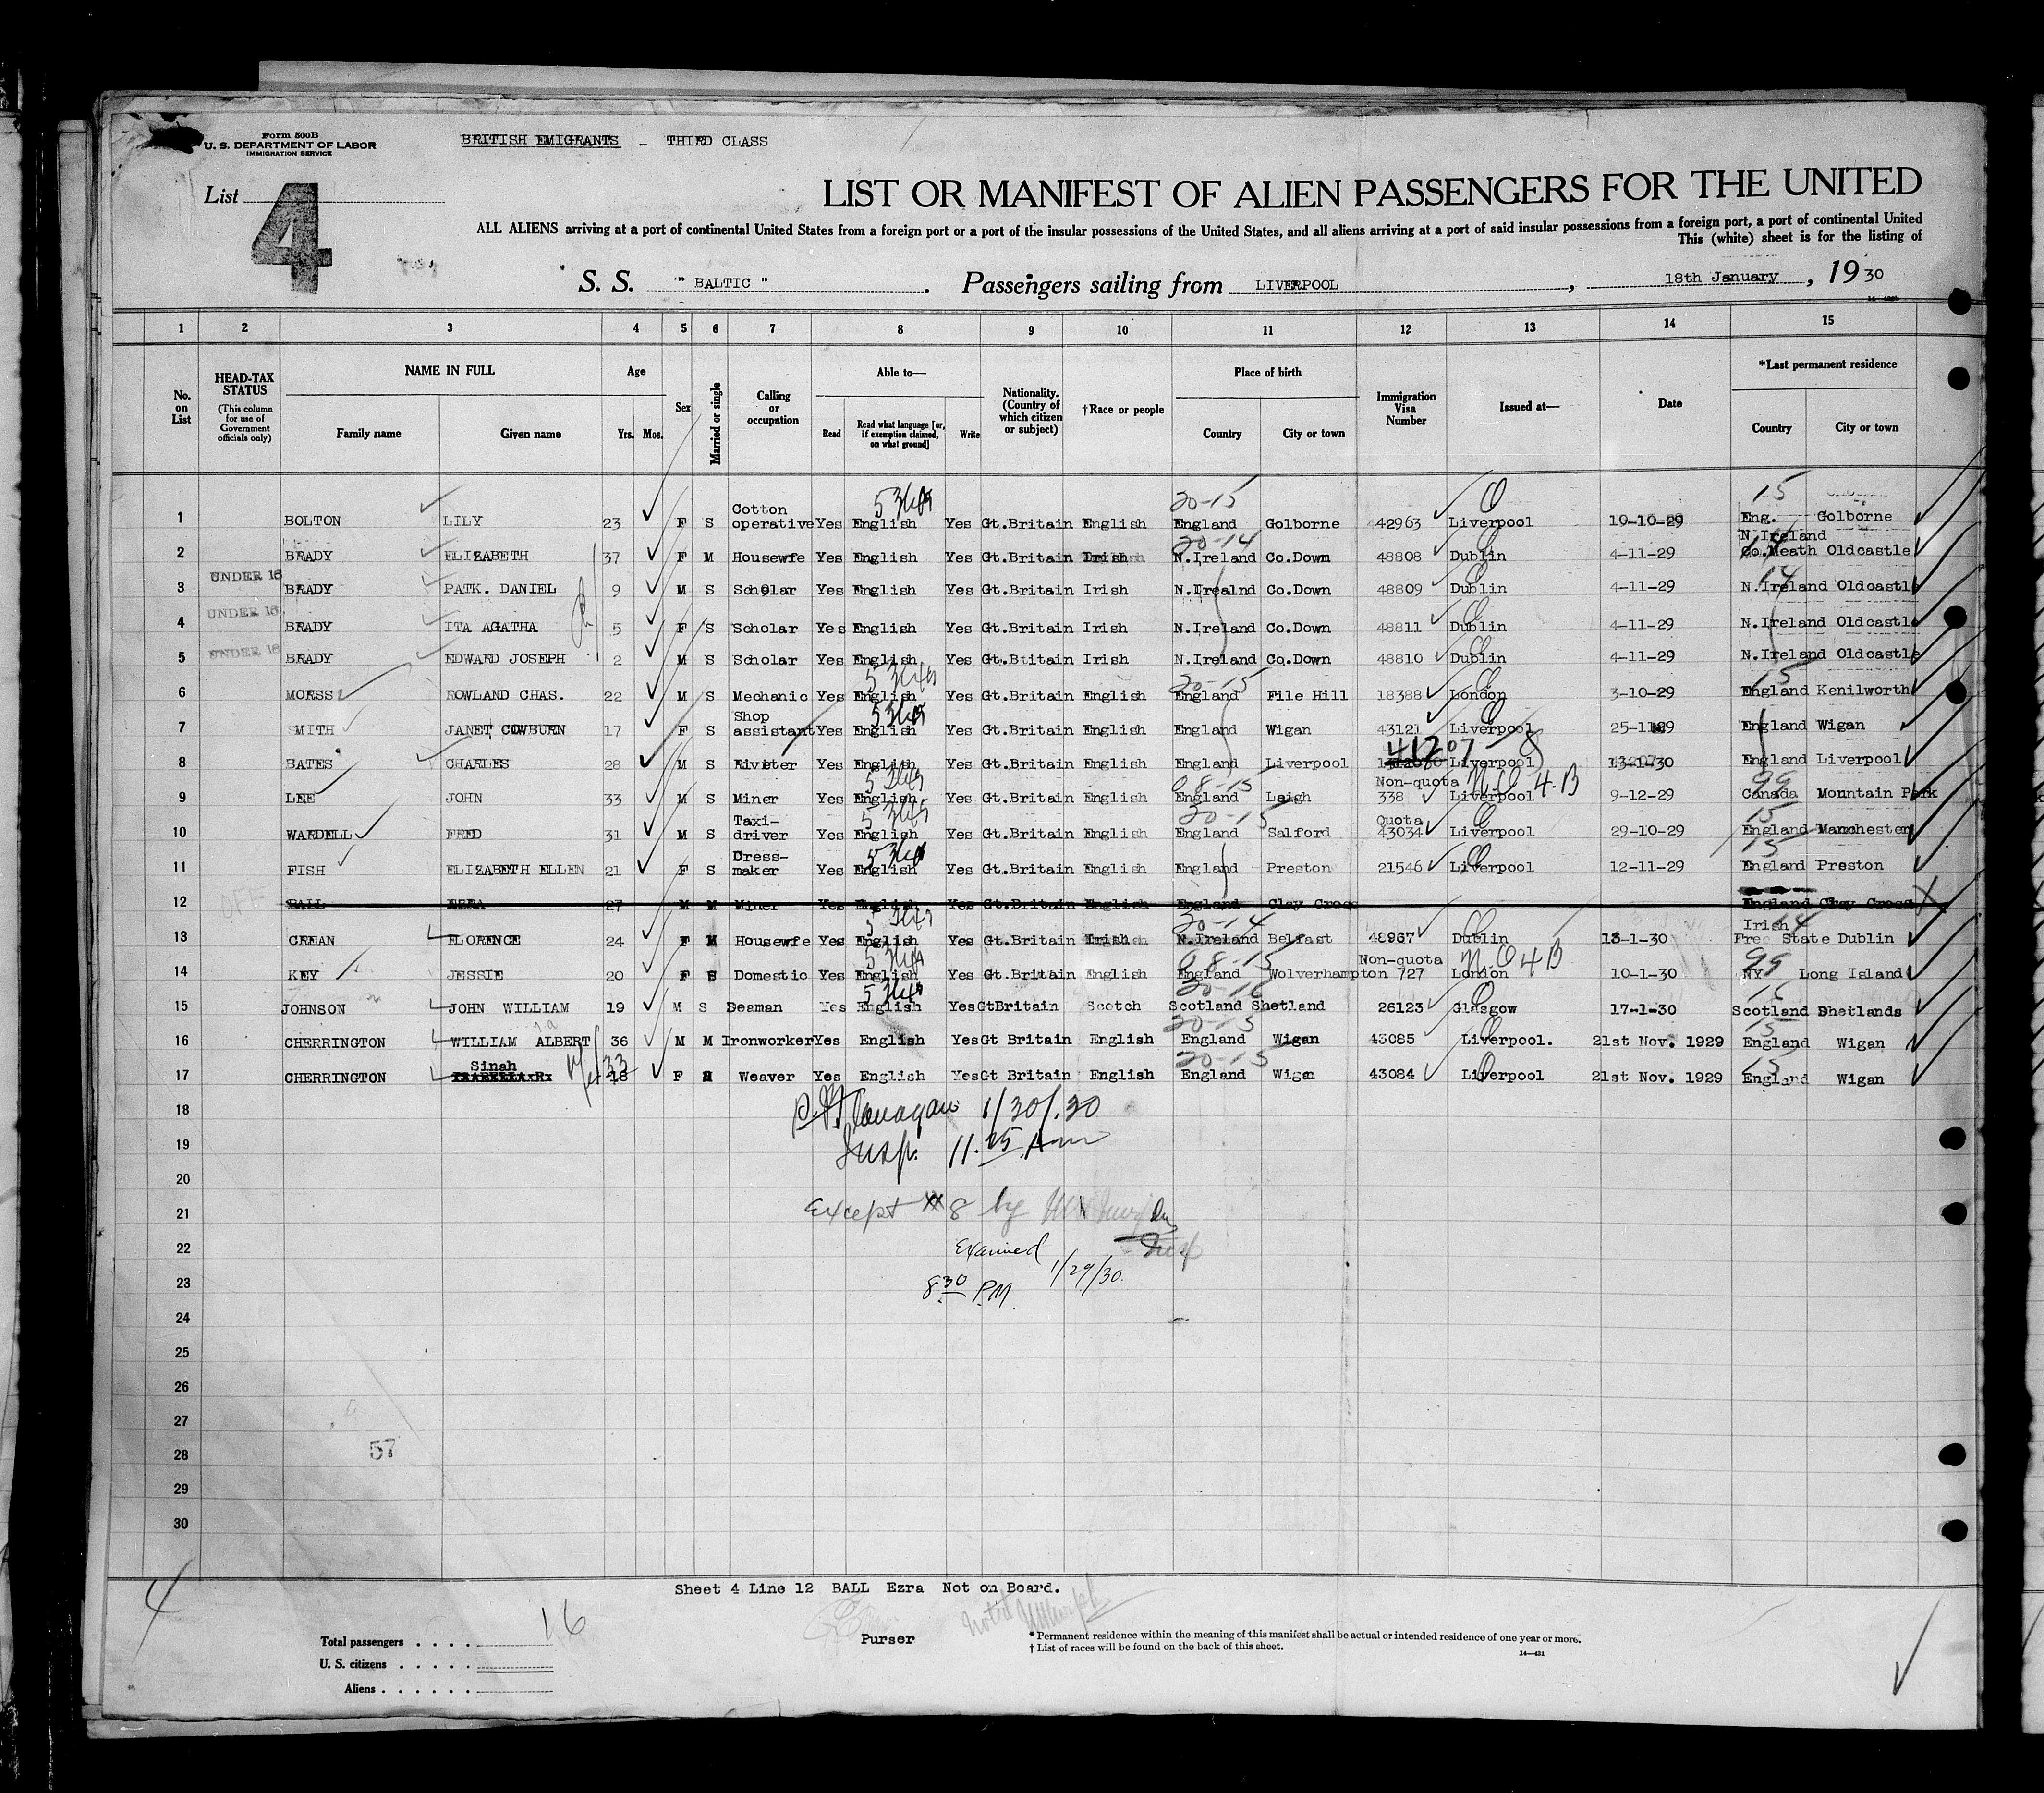 Form 500B
U. S. DEPARTMENT OF LABOR
IMMIGRATION SERVICE
BRITISH EMIGRANTS - THIRD CLASS
List 4
LIST OR MANIFEST OF ALIEN PASSENGERS FOR THE UNITED
ALL ALIENS arriving at a port of continental United States from a foreign port or a port of the insular possessions of the United States, and all aliens arriving at a port of said insular possessions from a foreign port, a port of continental United
This (white) sheet is for the listing of
S. S. " BALTIC " . Passengers sailing from LIVERPOOL , 18th January , 19 30
1 2 3 4 5 6 7 8 9 10 11 12 13 14 15
No. on List
HEAD-TAX STATUS (This column for use of Government officials only)
NAME IN FULL
Family name Given name
Age
Yrs. Mos.
Sex
Married or single
Calling or occupation
Able to—
Read Read what language [or, if exemption claimed, on what ground] Write
Nationality. (Country of which citizen or subject)
†Race or people
Place of birth
Country City or town
Immigration Visa Number
Issued at—
Date
*Last permanent residence
Country City or town
20-15 15
1 BOLTON LILY 23 F S Cotton operative Yes English Yes Gt.Britain English England Golborne 42963 Liverpool 19-10-29 Eng. Golborne
20-14 N.Ireland
2 BRADY ELIZABETH 37 F M Housewfe Yes English Yes Gt.Britain Irish N.Ireland Co.Down 48808 Dublin 4-11-29 Co.Meath Oldcastle
UNDER 16
3 BRADY PATK. DANIEL 9 M S Scholar Yes English Yes Gt.Britain Irish N.Irealnd Co.Down 48809 Dublin 4-11-29 N.Ireland Oldcastle
UNDER 16
4 BRADY ITA AGATHA 5 F S Scholar Yes English Yes Gt.Britain Irish N.Ireland Co.Down 48811 Dublin 4-11-29 N.Ireland Oldcastle
UNDER 16
5 BRADY EDWARD JOSEPH 2 M S Scholar Yes English Yes Gt.Btitain Irish N.Ireland Co.Down 48810 Dublin 4-11-29 N.Ireland Oldcastle
20-15 15
6 MORSS ROWLAND CHAS. 22 M S Mechanic Yes English Yes Gt.Britain English England File Hill 18388 London 3-10-29 England Kenilworth
7 SMITH JANET COWBURN 17 F S Shop assistant Yes English Yes Gt.Britain English England Wigan 43121 Liverpool 25-11-29 England Wigan
41207
8 BATES CHARLES 28 M S Riveter Yes English Yes Gt.Britain English England Liverpool Liverpool 13-1-30 England Liverpool
08-15 Non-quota N.Q 4-B 99
9 LEE JOHN 33 M S Miner Yes English Yes Gt.Britain English England Leigh 338 Liverpool 9-12-29 Canada Mountain Park
20-15 Quota 15
10 WARDELL FRED 31 M S Taxi-driver Yes English Yes Gt.Britain English England Salford 43034 Liverpool 29-10-29 England Manchester
15
11 FISH ELIZABETH ELLEN 21 F S Dress-maker Yes English Yes Gt.Britain English England Preston 21546 Liverpool 12-11-29 England Preston
12 BALL EZRA 27 M M Miner Yes English Yes Gt.Britain English England Clay Cross England Clay Cross
20-14 Irish
13 CREAN FLORENCE 24 F M Housewfe Yes English Yes Gt.Britain Irish N.Ireland Belfast 48967 Dublin 13-1-30 Free State Dublin
08-15 Non-quota N.Q 4B 99
14 KEY JESSIE 20 F S Domestic Yes English Yes Gt.Britain English England Wolverhampton 727 London 10-1-30 NY Long Island
20-16 16
15 JOHNSON JOHN WILLIAM 19 M S Seaman Yes English Yes GtBritain Scotch Scotland Shetland 26123 Glasgow 17-1-30 Scotland Shetlands
20-15 15
16 CHERRINGTON WILLIAM ALBERT 36 M M Ironworker Yes English Yes Gt Britain English England Wigan 43085 Liverpool. 21st Nov. 1929 England Wigan
Sinah 33 20-15 15
17 CHERRINGTON F Weaver Yes English Yes Gt Britain English England Wigan 43084 Liverpool 21st Nov. 1929 England Wigan
18
Flanagan 1/30/30
19
Insp. 11.15 Am
20
21
Except # 8 by
22
Examined Insp
23
8 30 P.M. 1/29/30.
24
25
26
27
28
57
29
30
4
Sheet 4 Line 12 BALL Ezra Not on Board.
Purser
Total passengers . . . . 16
U. S. citizens . . . . .
Aliens . . . . . .
* Permanent residence within the meaning of this manifest shall be actual or intended residence of one year or more.
† List of races will be found on the back of this sheet.
14—431